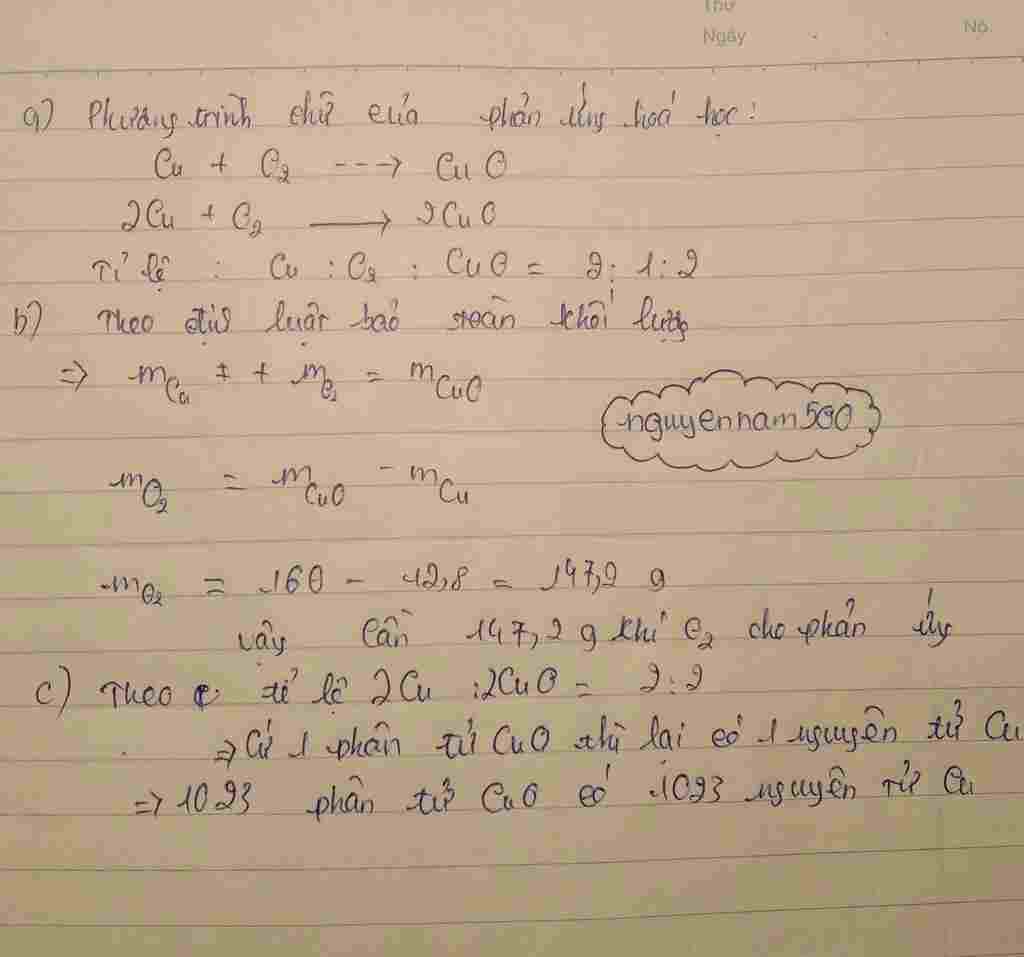 Thứ
Ngày
No.
a) Phương trình chữ của phản ứng hoá học:
Cu + O2 ---> CuO
2Cu + O2 ⟶ 2CuO
Tỉ lệ : Cu : O2 : CuO = 2 : 1 : 2
b) Theo định luật bảo toàn khối lượng
=> mCu + + mO2 = mCuO
nguyennam500
mO2 = mCuO - mCu
mO2 = 160 - 12,8 = 147,2 g
vậy cần 147,2 g khí O2 cho phản ứng
c) Theo tỉ lệ 2Cu : 2CuO = 2 : 2
=> Cứ 1 phân tử CuO thì lại có 1 nguyên tử Cu
=> 1023 phân tử CuO có 1023 nguyên tử Cu